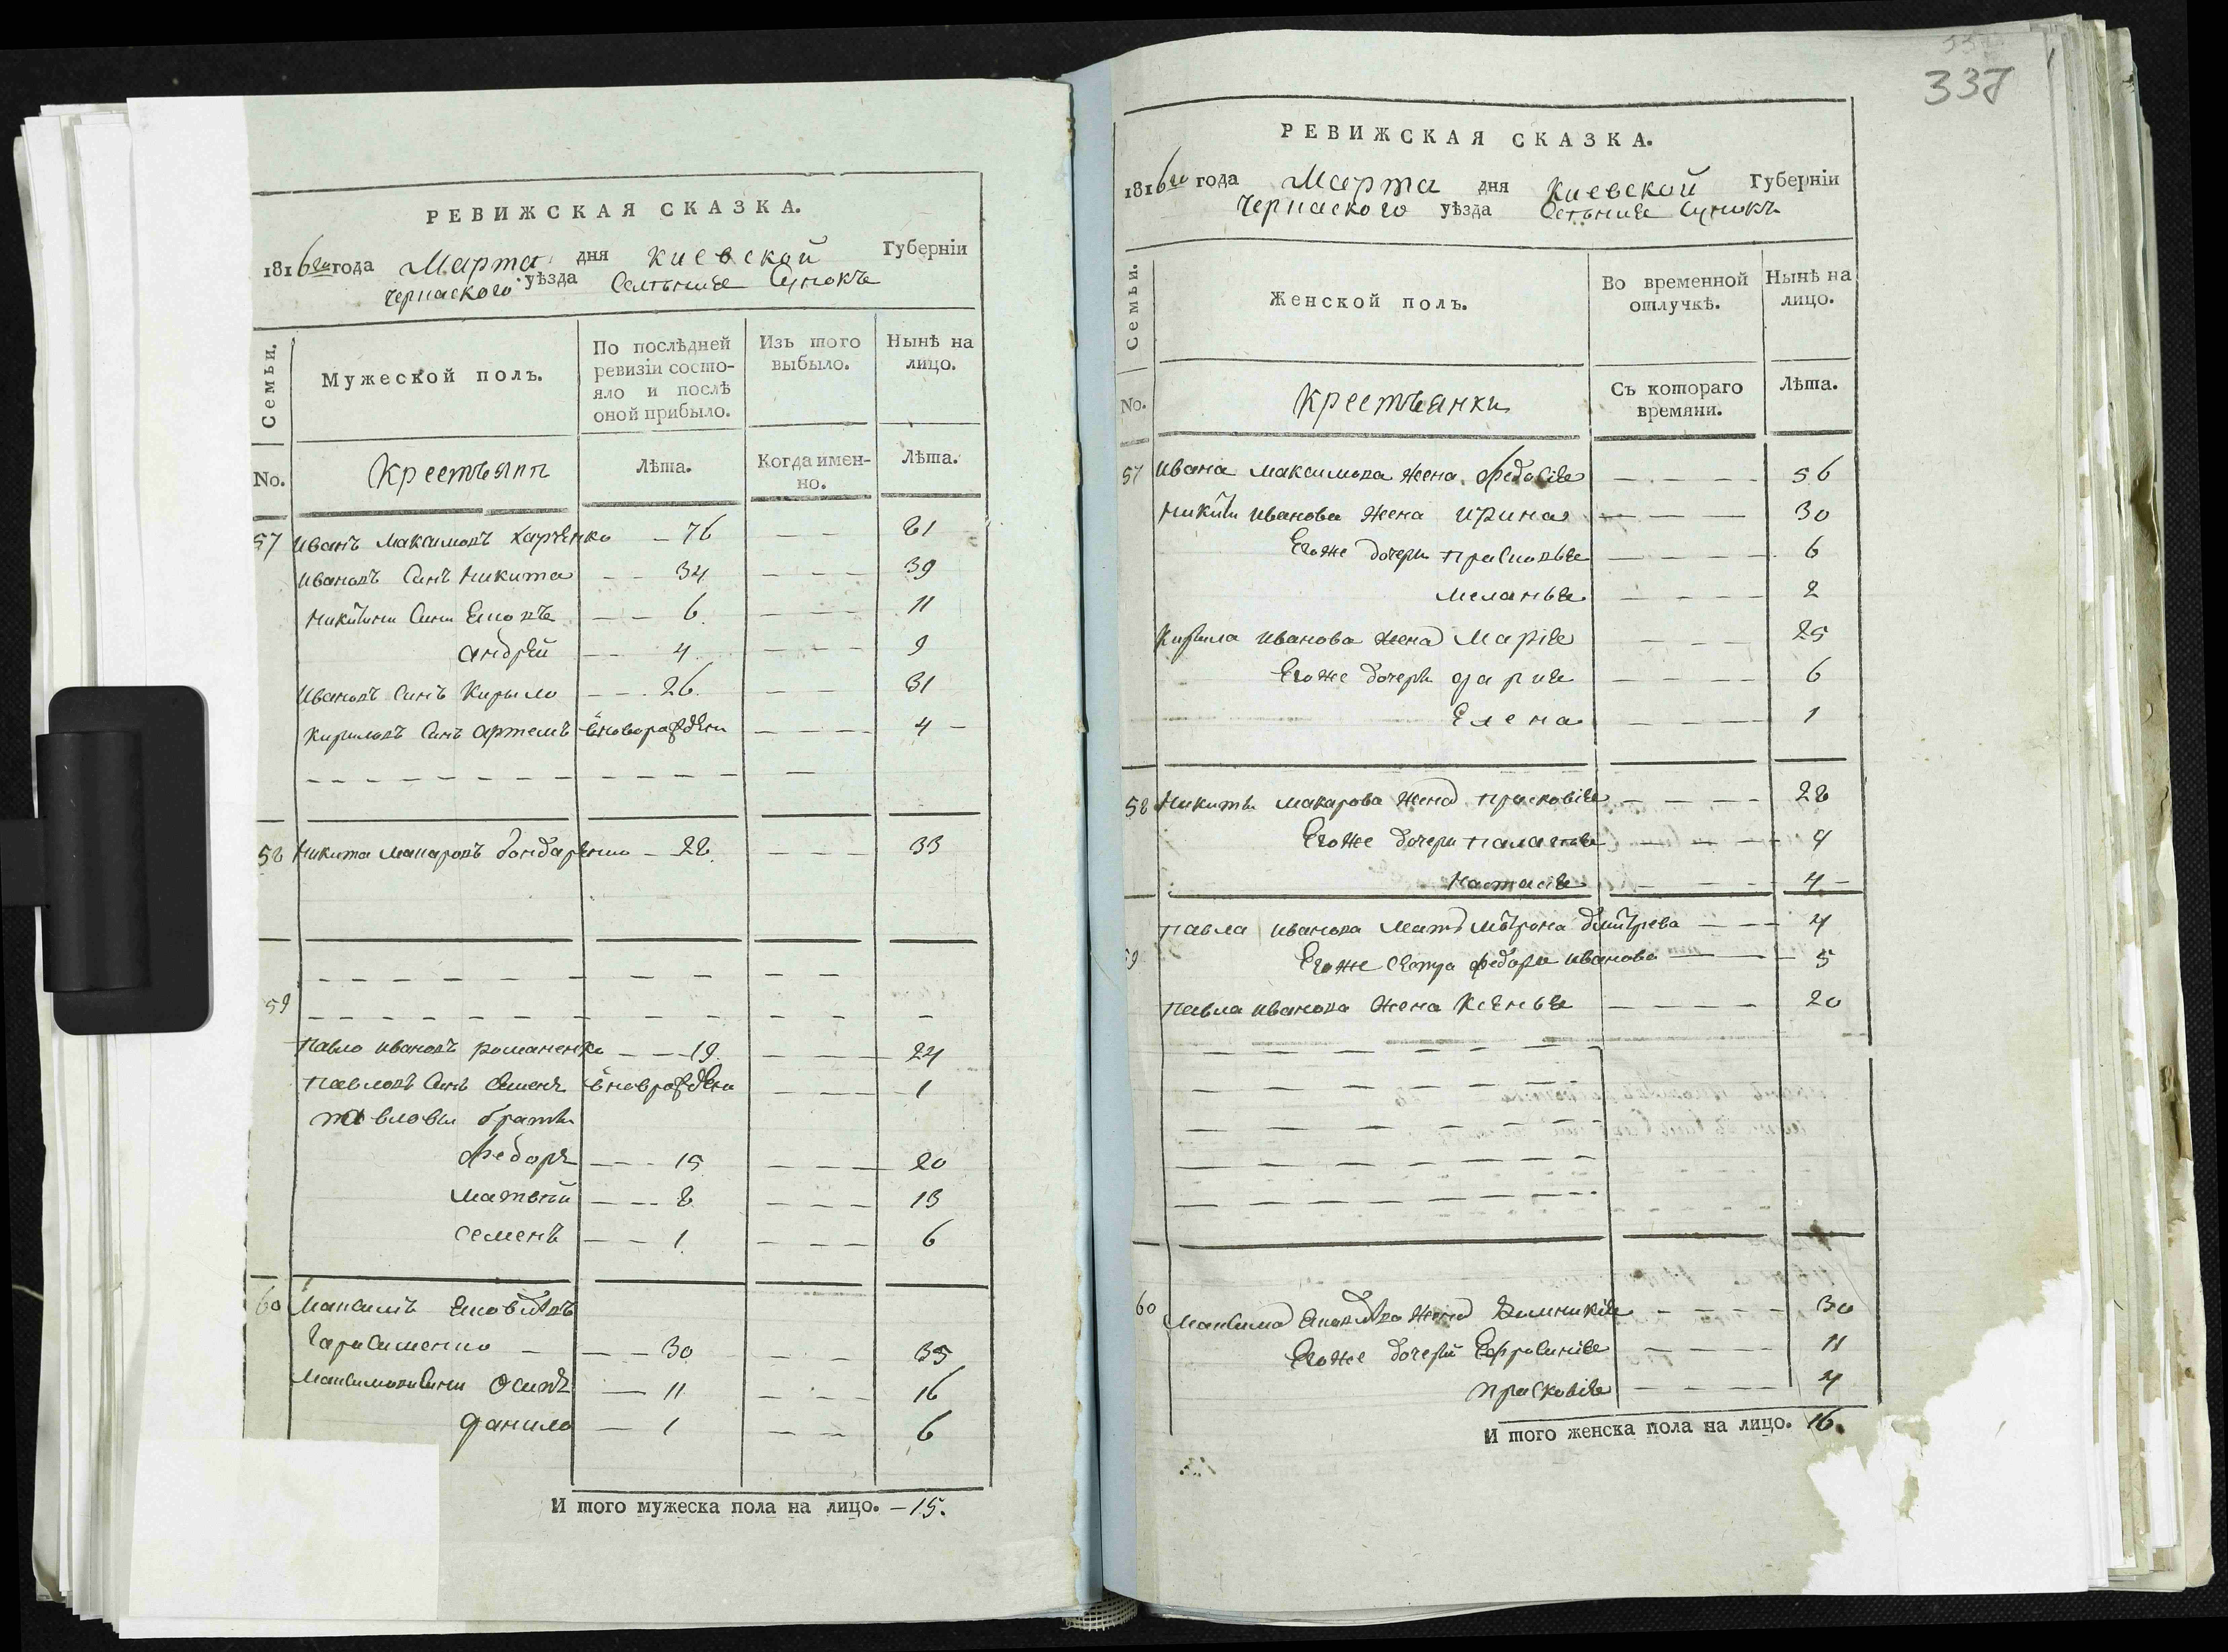 РЕВИЖСКАЯ СКАЗКА.
1816го года Марта дня Киевской Губерніи
Черкаского уѣзда Сунокъ
Семьи.
Мужеской полъ.
По послѣдней ревизіи состо-
яло и послѣ
оной прибыло.
Изъ того
выбыло.
Нынѣ на
лицо.
No.
Крестьяне
Лѣта.
Когда имен-
но.
Лѣта.
57 Иванъ Максимовъ Харченко — 76 — — 81
Ивановъ Синъ Никита — — 34 — — — 39
Никитини Сини — — 6 — — — 11
Андрей — — 4 — — — 9
Ивановъ Синъ Кирыло — — 26 — — 31
Кириловъ Синъ Артемъ вноворожден — — — 4 —
58 Никита Макаровъ Бондаренко — 28 — — — 33
59
Павло Ивановъ Романенко — — 19 — — — 24
Павловъ Синъ Семенъ вноврожден — — — 1
Павловы братья
Федоръ — — 15 — — — 20
Матвей — — 8 — — — 13
Семенъ — — 1 — — — 6
60 Максимъ
Гарасименко — — — 30 — — — 35
Максимови Сини Осипъ — 11 — — — 16
Данило — 1 — — 6
И того мужеска пола на лицо. — 15.
337
РЕВИЖСКАЯ СКАЗКА.
1816го года Марта дня Киевской Губерніи
Черкаского уѣзда Сунокъ
Семьи.
Женской полъ.
Во временной
отлучкѣ.
Нынѣ на
лицо.
No.
Крестьянки
Съ котораго
времяни.
Лѣта.
57 Ивана Максимова жена Федосія — — — — 56
Никиты Иванова жена Ирина — — — 30
Егоже дочери Прасковья — — — — 6
Меланья — — — — 2
Кирила Иванова жена Марія — — — 25
Егоже дочери Дарія — — — — 6
Елена — — — — 1
58 Никиты Макарова жена Прасковія — — — — 28
Егоже дочери Палагія — — — — 4
Настасія — — — 4 —
Павла Иванова мать Матрона Дмитрева — — — 4
59 Егоже сестра Федора Иванова — — 5
Павла Иванова жена Ксенья — — — — 20
60 Максима жена — — — — 30
Егоже дочери Ефросинія — — — — 11
Прасковія — — — — 4
И того женска пола на лицо. 16.